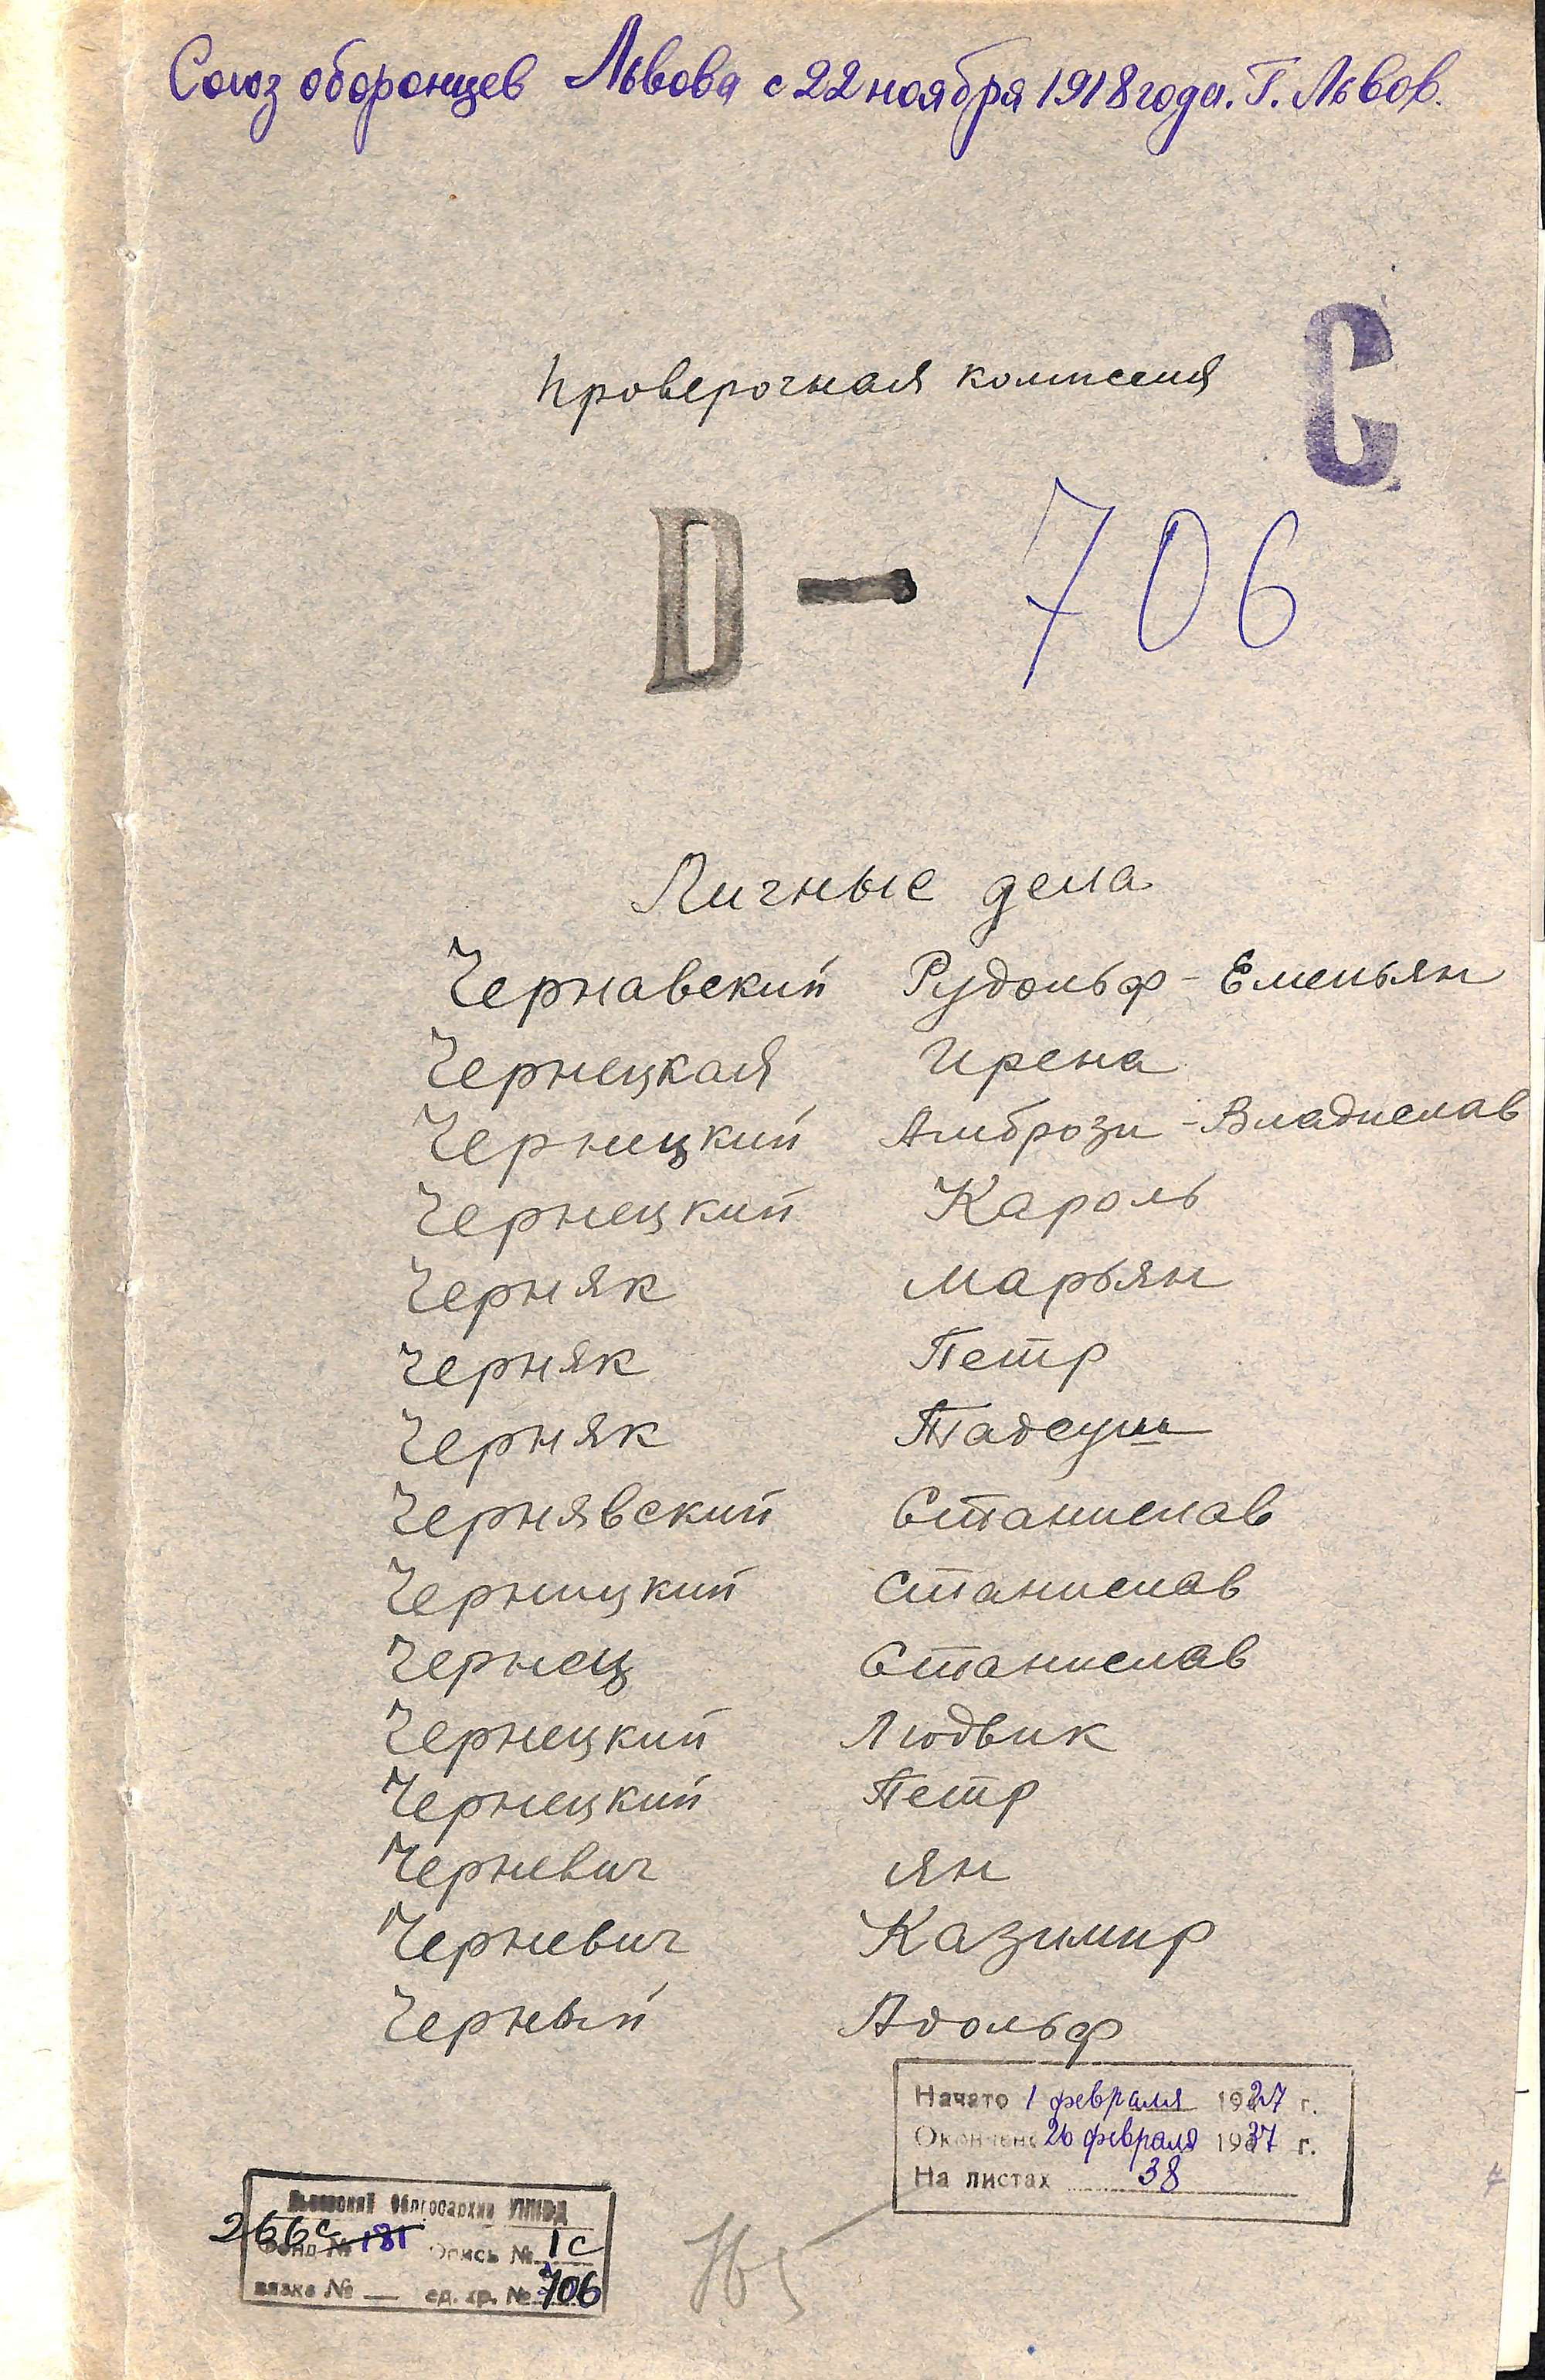 Союз оборонцев Львова с 22 ноября 1918 года. Г. Львов.
Проверочная комиссия
С
D — 706
Личные дела
Чернавский Рудольф - Емельян
Чернецкая Ирена
Черницкий Амбрози - Владислав
Чернецкий Кароль
Черняк Марьян
Черняк Петр
Черняк Тадеуш
Чернявский Станислав
Черницкий Станислав
Чернец Станислав
Чернецкий Людвик
Чернецкий Петр
Черневич Ян
Черневич Казимир
Черный Адольф
Начато 1 февраля 1927 г.
Окончено 26 февраля 1937 г.
На листах 38
Львовский Облгосархив УМВД
266с Фонд № 131 Опись № 1с
вязка № — ед. хр. № 706